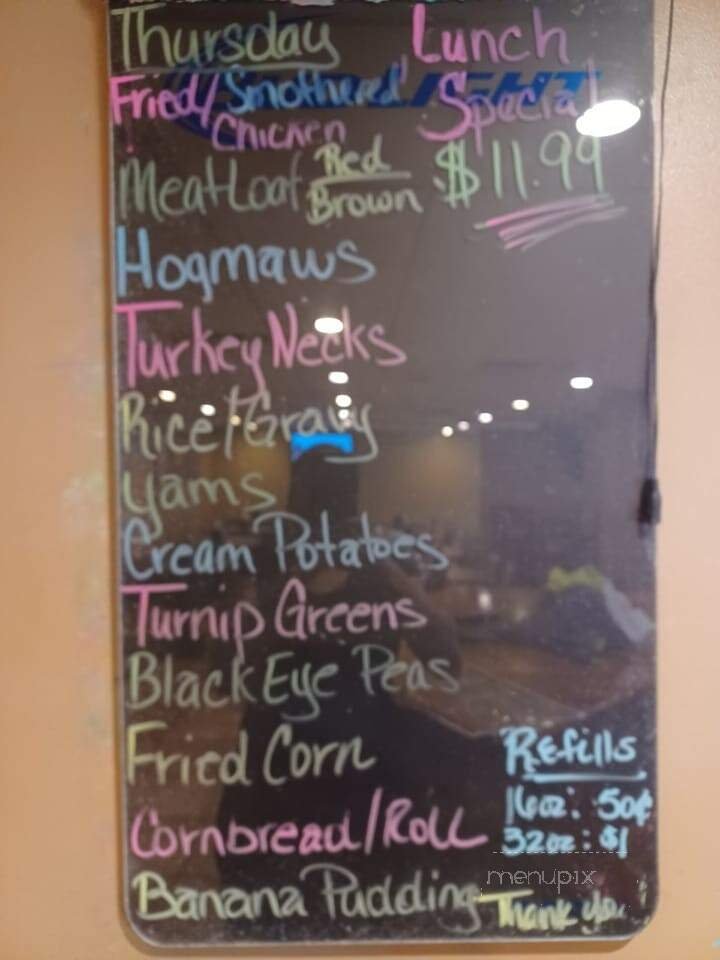 Thursday Lunch
Fried/Smothered Special
Chicken
Meatloaf Red Brown $11.99
Hogmaws
Turkey Necks
Rice/Gravy
Yams
Cream Potatoes
Turnip Greens
Black Eye Peas
Fried Corn
Refills
16oz: 50¢
Cornbread/Roll
32oz: $1
menupix
Banana Pudding
Thank you